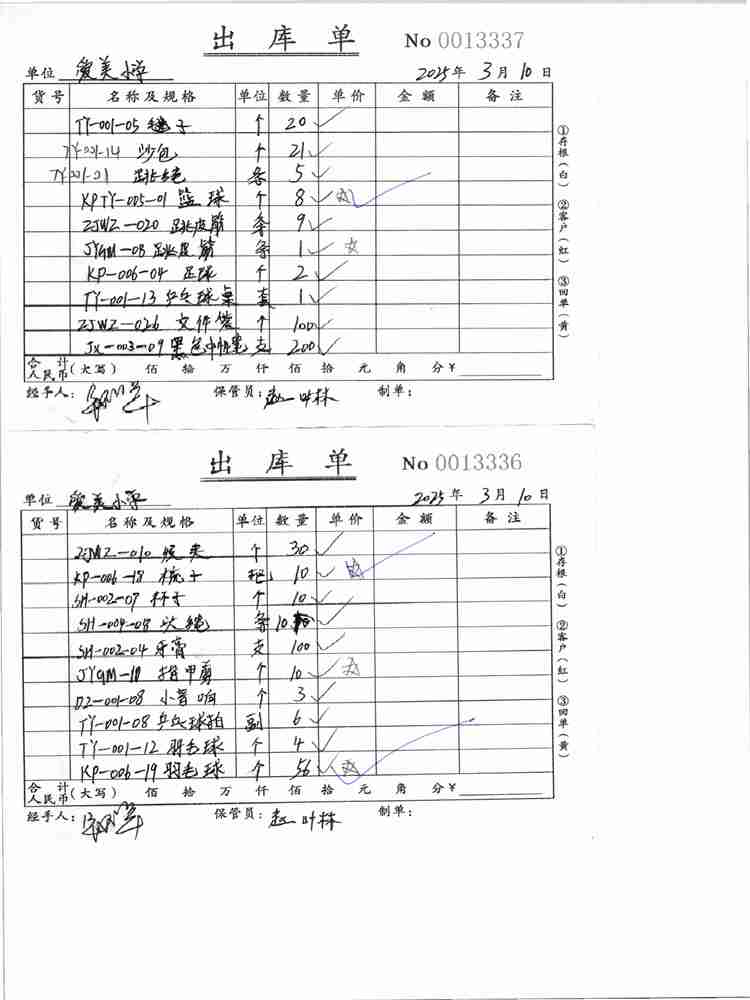 出 库 单 No 0013337
单位 爱美小学 2025年 3月 10日
货号 名称及规格 单位 数量 单价 金额 备注
TY-001-05 毽子 个 20
TY-001-14 沙包 个 21
TY001-01 跳绳 条 5
KPTY-005-01 篮球 个 8
ZJWZ-020 跳皮筋 条 9
JYGM-08 跳皮筋 条 1
KP-006-04 足球 个 2
TY-001-13 乒乓球桌 套 1
ZJWZ-026 文件袋 个 100
JX-003-09 黑色中性笔 支 200
合计人民币(大写) 佰 拾 万 仟 佰 拾 元 角 分 ¥
经手人： 保管员：赵叶林 制单：
①存根(白) ②客户(红) ③回单(黄)
出 库 单 No 0013336
单位 爱美小学 2025年 3月 10日
货号 名称及规格 单位 数量 单价 金额 备注
ZJWZ-010 发夹 个 30
KP-006-18 梳子 把 10
SH-002-07 杯子 个 10
SH-004-08 头绳 条 10
SH-002-04 牙膏 支 100
JYGM-11 指甲剪 个 10
DZ-001-08 小音响 个 3
TY-001-08 乒乓球拍 副 6
TY-001-12 羽毛球 个 4
KP-006-19 羽毛球 个 56
合计人民币(大写) 佰 拾 万 仟 佰 拾 元 角 分 ¥
经手人： 保管员：赵叶林 制单：
①存根(白) ②客户(红) ③回单(黄)